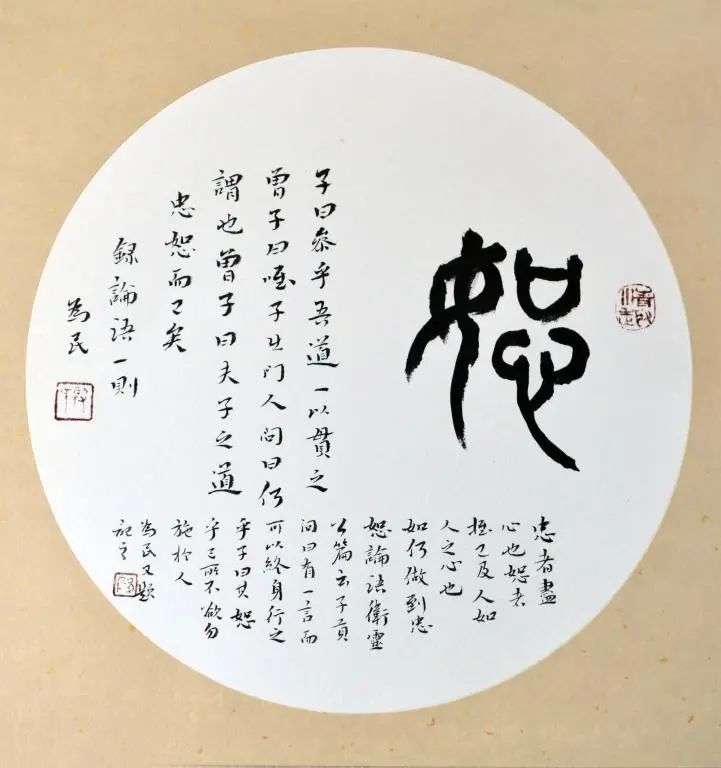 恕
子曰參乎吾道一以貫之
曾子曰唯子出門人問曰何
謂也曾子曰夫子之道
忠恕而已矣
録論語一則
為民
忠者盡
心也恕者
推己及人如
人之心也
如何做到忠
恕論語衛靈
公篇云子貢
問曰有一言而
可以終身行之
乎子曰其恕
乎己所不欲勿
施於人
為民又題
記之